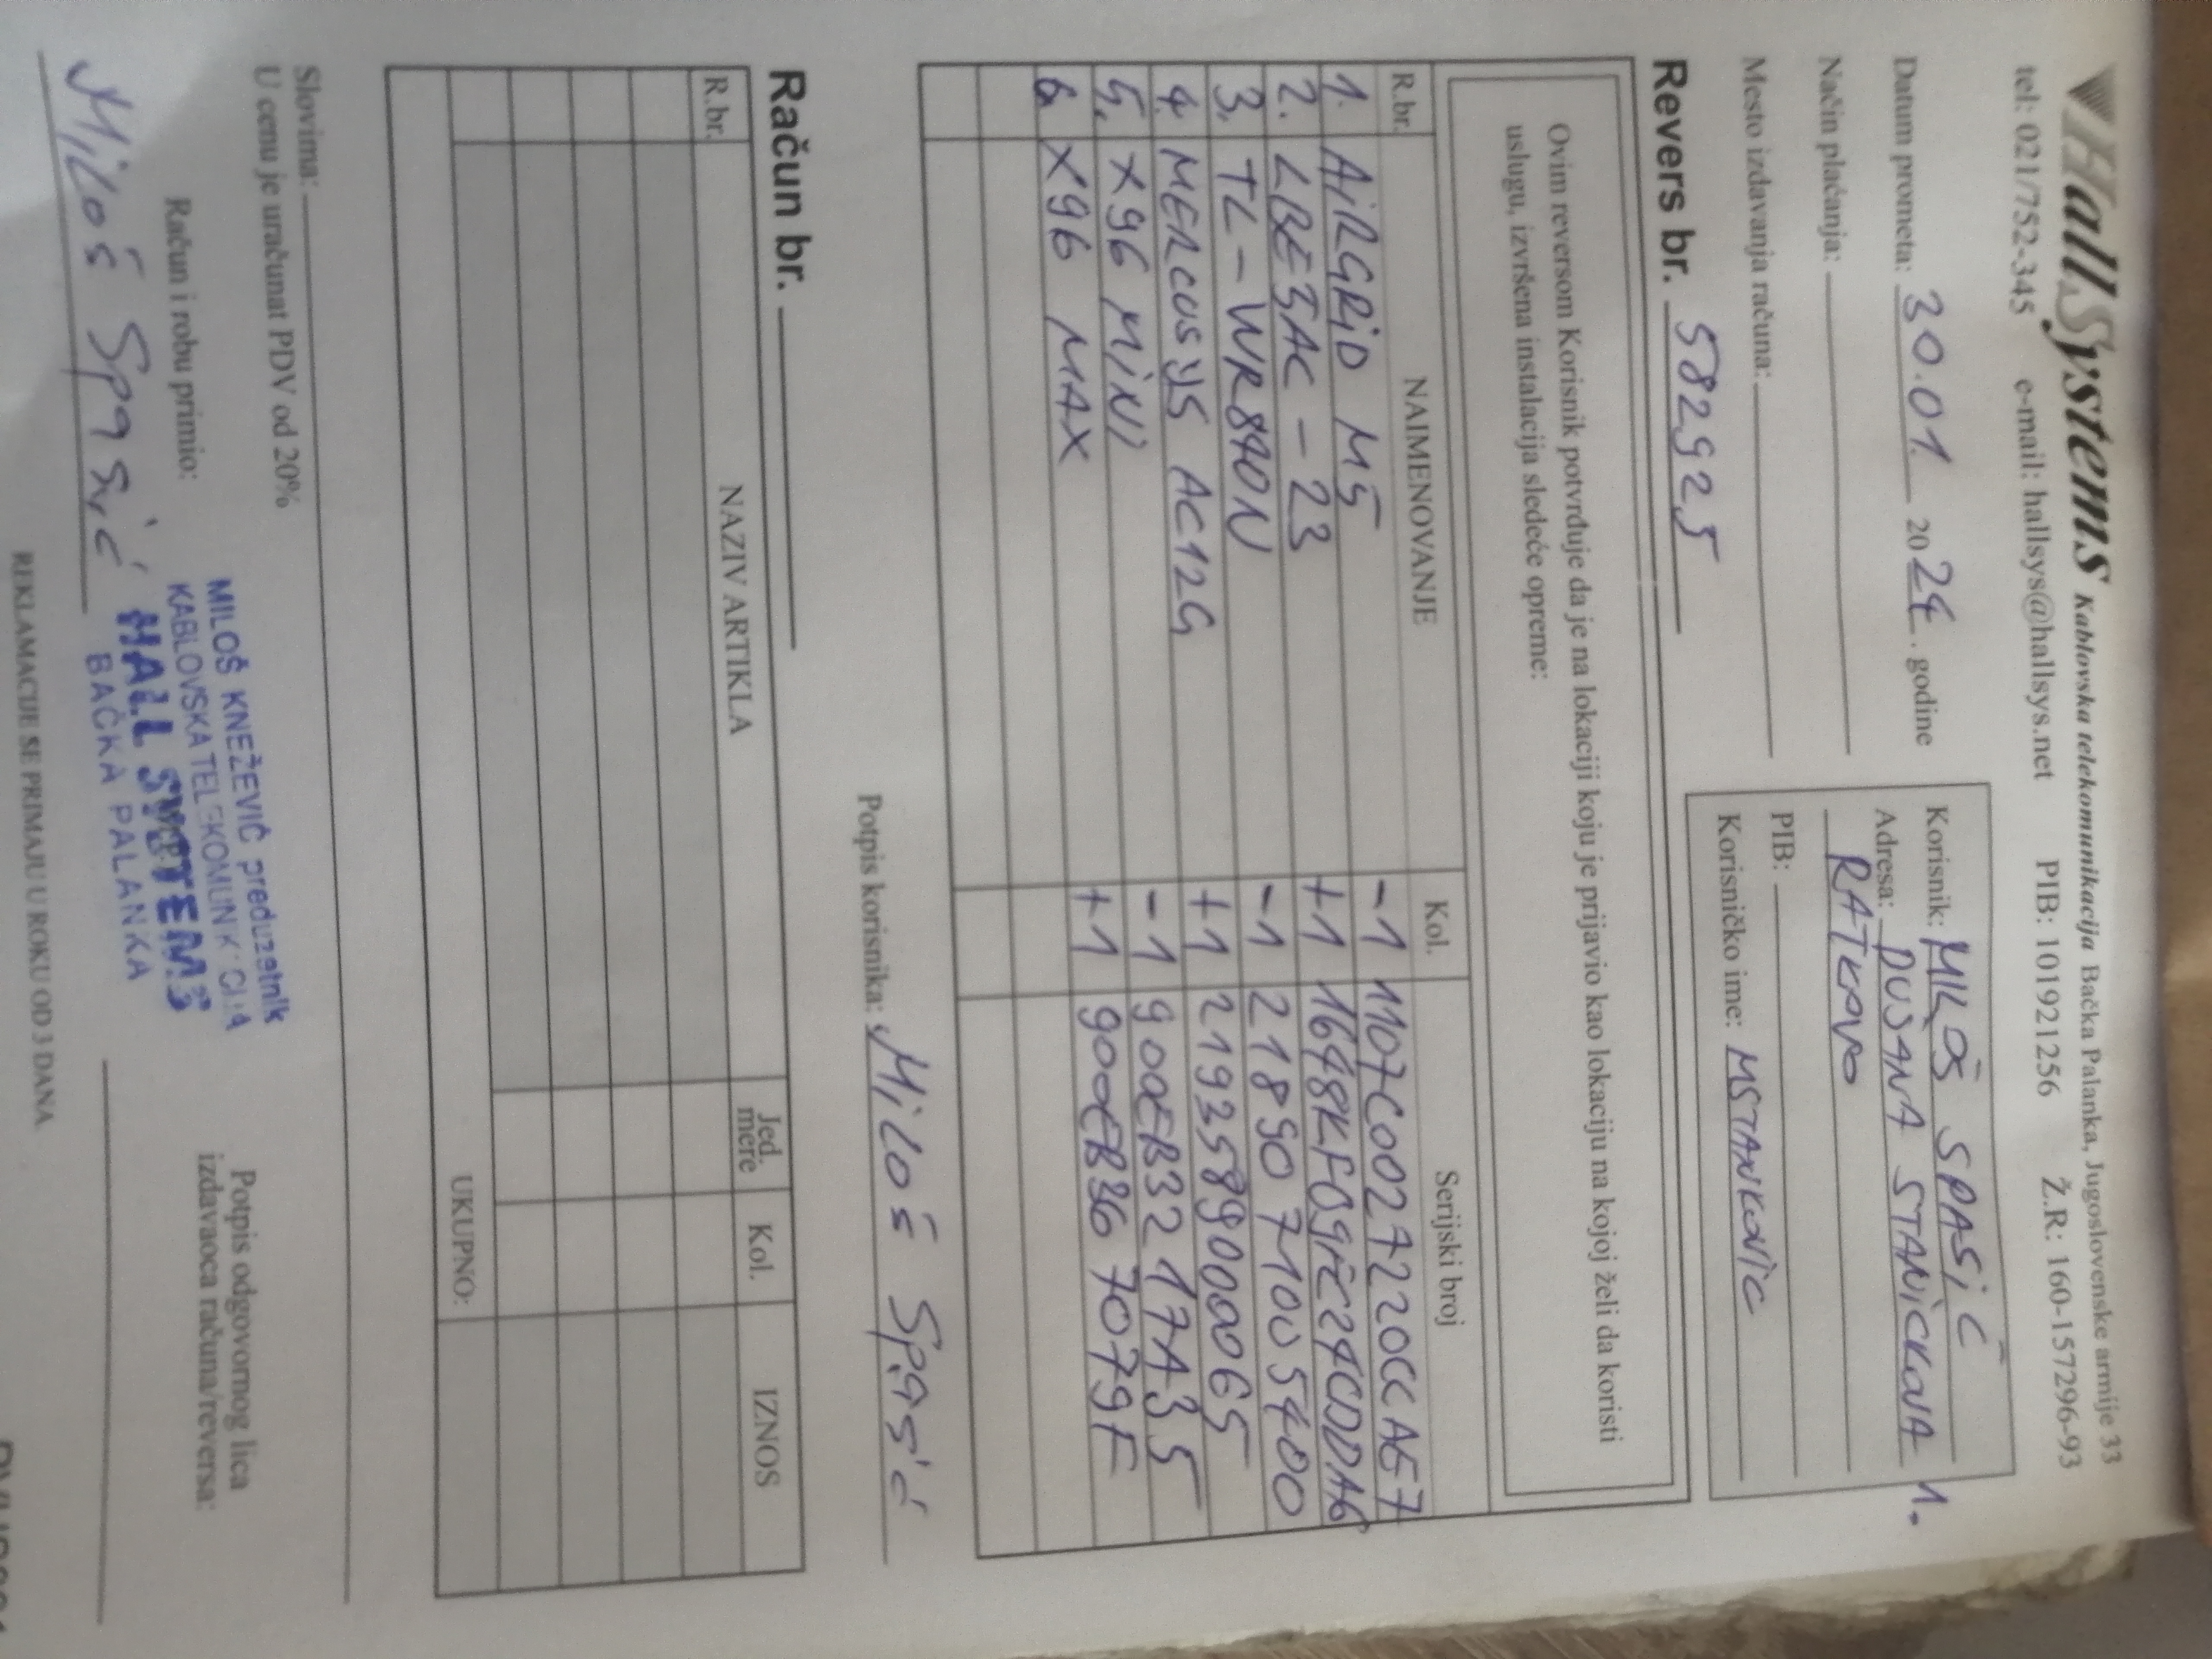 HallSystems Kablovska telekomunikacija Bačka Palanka, Jugoslovenske armije 33
tel: 021/752-345 e-mail: hallsys@hallsys.net PIB: 101921256 Ž.R: 160-157296-93
Datum prometa: 30.01. 2024. godine
Način plaćanja:
Mesto izdavanja računa:
Korisnik: MILOŠ SPASIĆ
Adresa: DUŠANA STANIČKOVA 1.
RATKOVO
PIB:
Korisničko ime: MSTANKOVIC
Revers br. 582925
Ovim reversom Korisnik potvrđuje da je na lokaciji koju je prijavio kao lokaciju na kojoj želi da koristi
uslugu, izvršena instalacija sledeće opreme:
R.br. NAIMENOVANJE Kol. Serijski broj
1. AIRGRID M5 -1 1107C0027220CCAE7
2. LBE5AC-23 +1 1648KF09FC24CDDA6
3. TL-WR840N -1 2189071005400
4. MERCUSYS AC12G +1 2193589000065
5. X96 MINI -1 900EB3217A35
6. X96 MAX +1 900EB367079F
Potpis korisnika: Miloš Spasić
Račun br.
R.br. NAZIV ARTIKLA Jed. mere Kol. IZNOS
UKUPNO:
Slovima:
U cenu je uračunat PDV od 20%
Račun i robu primio:
Miloš Spasić
MILOŠ KNEŽEVIĆ preduzetnik
KABLOVSKA TELEKOMUNIKACIJA
HALL SYSTEMS
BAČKA PALANKA
Potpis odgovornog lica
izdavaoca računa/reversa:
REKLAMACIJE SE PRIMAJU U ROKU OD 3 DANA